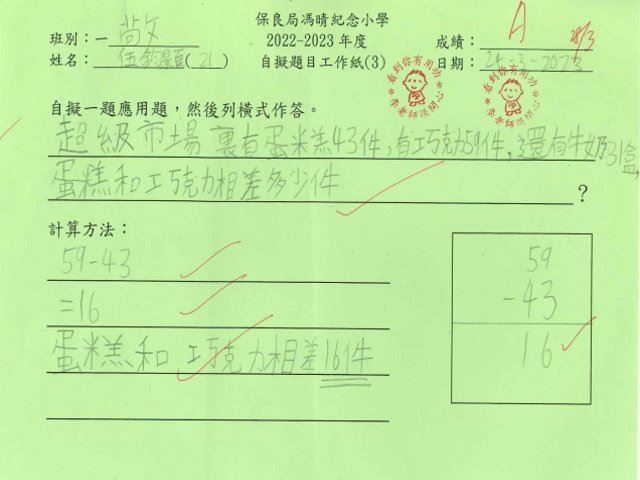 保良局馮晴紀念小學
班別：一尚文
2022-2023 年度
成績：A 28/3
姓名：伍(21)
自擬題目工作紙(3)
日期：25-3-2023
看到你有用功
看到你有用功
自擬一題應用題，然後列橫式作答。
超級市場裏有蛋糕43件，有巧克力59件，還有牛奶31盒，
蛋糕和巧克力相差多少件？
計算方法：
59-43
59
=16
-43
蛋糕和巧克力相差16件
16